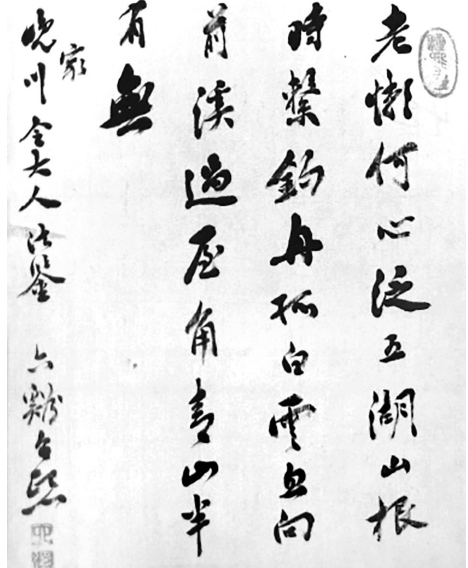 老懶何心泛五湖山根
時繫釣舟孤白雲忽向
前溪過屋角青山半
有無
川大人法鑒 六谿